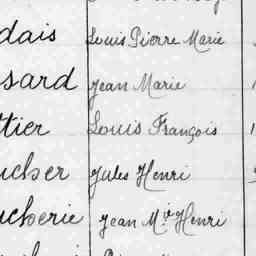 dais Louis Pierre Marie
sard Jean Marie
ttier Louis François
ucher Jules Henri
ucherie Jean M.ie Henri